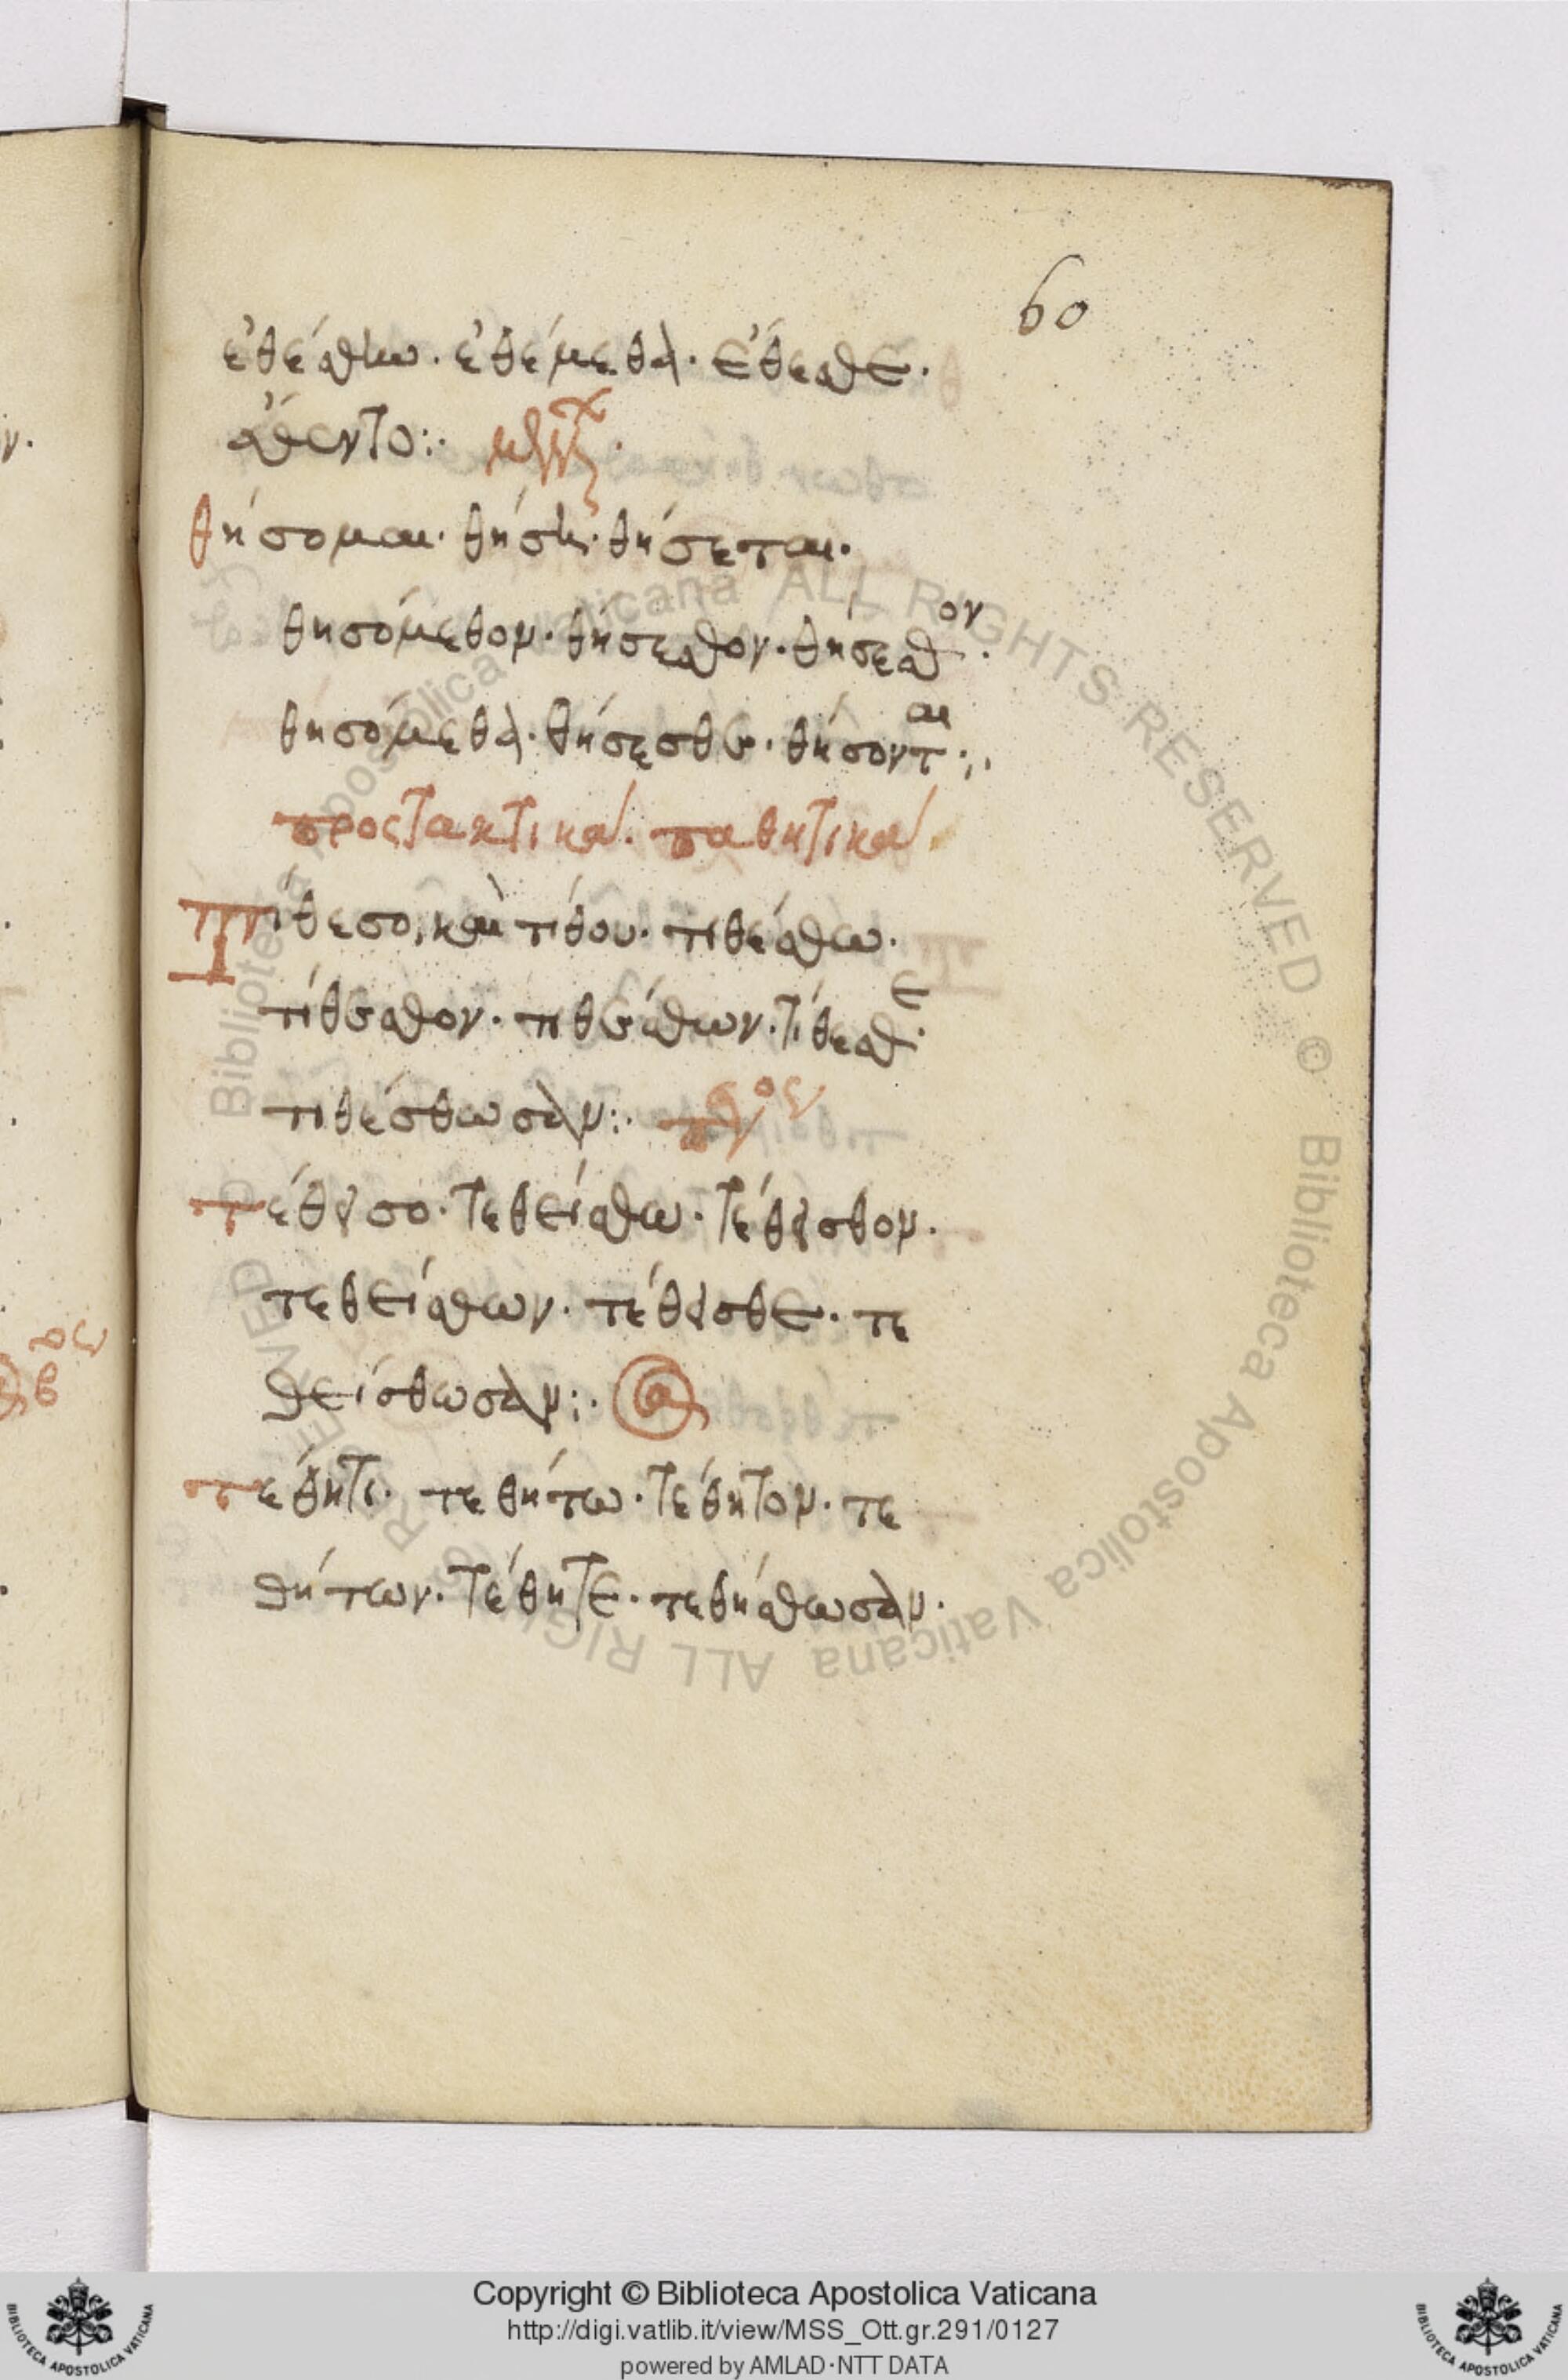 60
ἐθέσθην· ἐθέμεθα· ἔθεσθε·
ἔθεντο:·
θήσομαι· θήσῃ· θήσεται·
θησόμεθον· θήσεσθον· θήσεσθον·
θησόμεθα· θήσεσθε· θήσονται:·
προστακτικά· παθητικά·
Τίθεσο, καὶ τίθου· τιθέσθω·
τίθεσθον· τιθέσθων· τίθεσθε·
τιθέσθωσαν:·
τέθεισο· τεθείσθω· τέθεισθον·
τεθείσθων· τέθεισθε· τε
θείσθωσαν:·
τέθητι· τεθήτω· τέθητον· τε
θήτων· τέθητε· τεθήσθωσαν·
Copyright © Biblioteca Apostolica Vaticana
http://digi.vatlib.it/view/MSS_Ott.gr.291/0127
powered by AMLAD·NTT DATA
BIBLIOTECA APOSTOLICA VATICANA
BIBLIOTECA APOSTOLICA VATICANA
Biblioteca Apostolica Vaticana ALL RIGHTS RESERVED ©